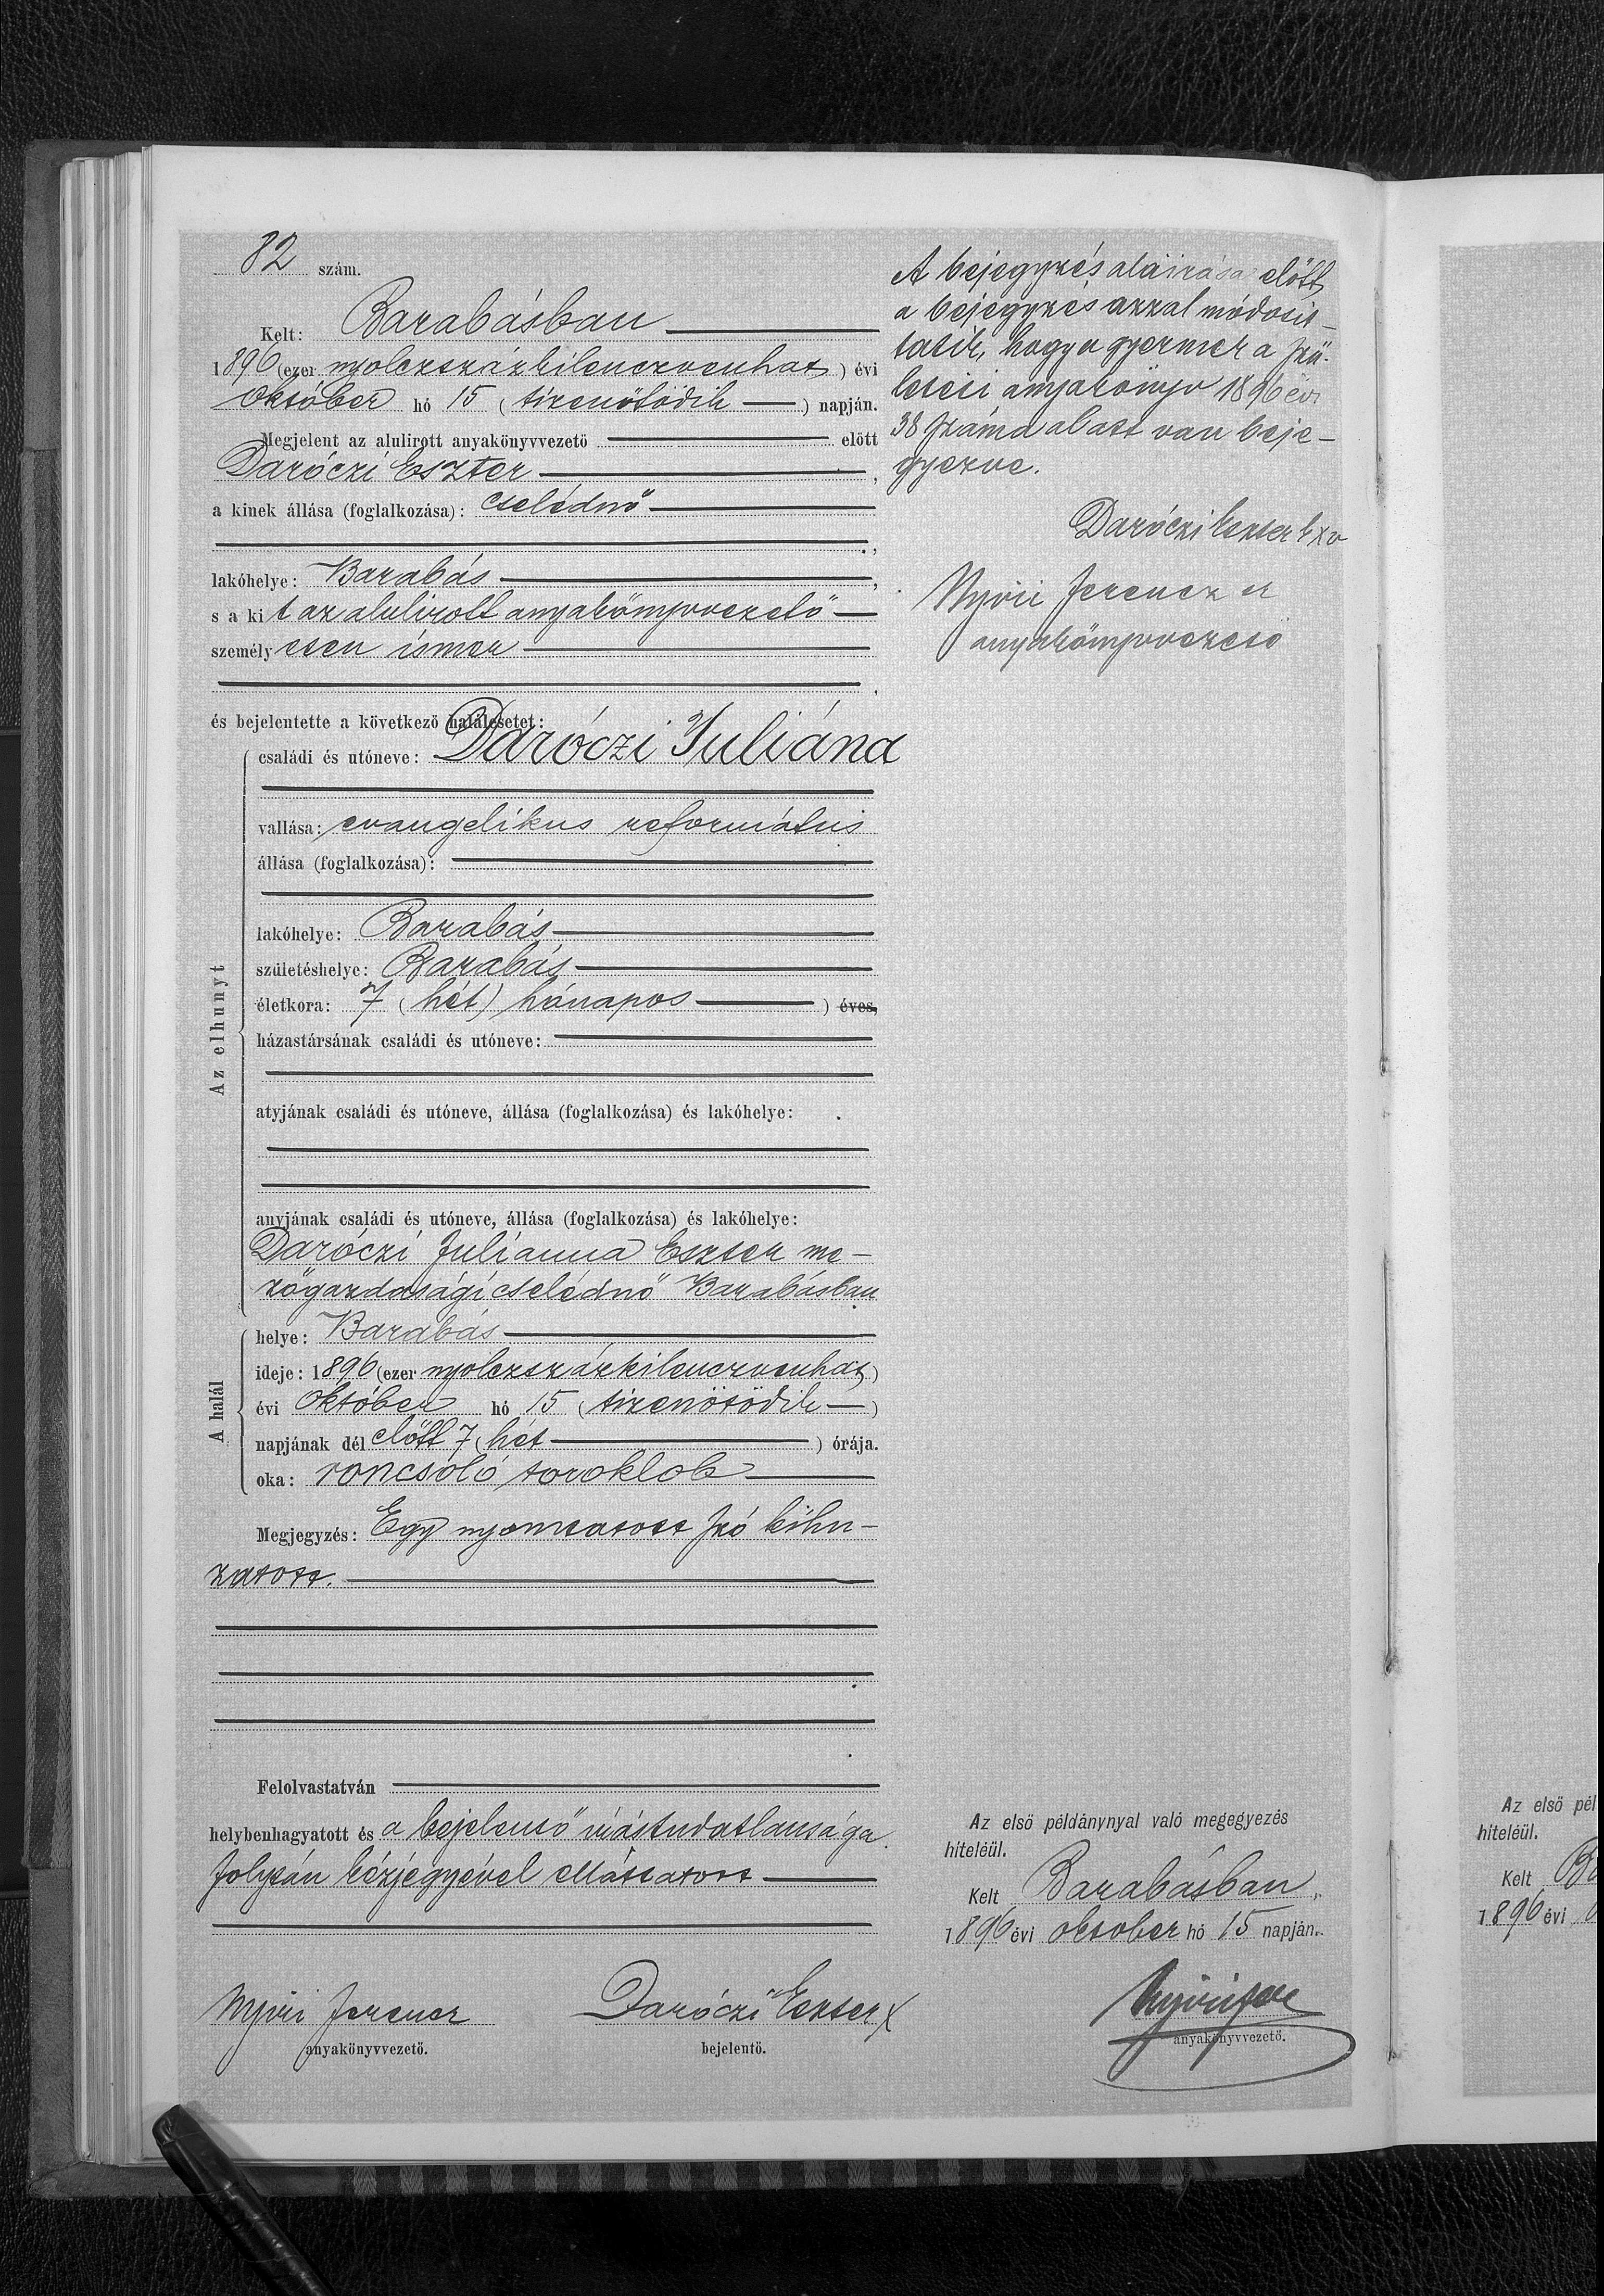 82 szám.
Kelt: Barabásban
1896 (ezer nyolczszázkilenczvenhat) évi
október hó 15 (tizenötödik) napján.
Megjelent az alulirott anyakönyvvezető előtt
Daróczi Eszter,
a kinek állása (foglalkozása): cselédnő
lakóhelye: Barabás,
s a kit az alulirott anyakönyvvezető
személyesen ismer
és bejelentette a következő halálesetet:
Az elhunyt
családi és utóneve: Daróczi Juliána
vallása: evangelikus református
állása (foglalkozása):
lakóhelye: Barabás
születéshelye: Barabás
életkora: 7 (hét) hónapos ) éves,
házastársának családi és utóneve:
atyjának családi és utóneve, állása (foglalkozása) és lakóhelye:
anyjának családi és utóneve, állása (foglalkozása) és lakóhelye:
Daróczi Julianna Eszter me-
zőgazdasági cselédnő Barabásban
A halál
helye: Barabás
ideje: 1896 (ezer nyolczszázkilenczvenhat)
évi október hó 15 (tizenötödik)
napjának dél előtt 7 (hét) órája.
oka: roncsoló toroklob
Megjegyzés: Egy nyomtatott szó kihu-
zatott.
Felolvastatván
helybenhagyatott és a bejelentő irástudatlansága
folytán kézjegyével elláttatott
Nyiri Ferencz Daróczi Eszter X
anyakönyvvezető. bejelentő.
A bejegyzés aláirása előtt
a bejegyzés azzal módosit-
tatik, hogy a gyermek a szü-
letési anyakönyv 1896 évi
38 száma alatt van beje-
gyezve.
Daróczi Eszter X
Nyiri Ferencz
anyakönyvvezető
Az első példánynyal való megegyezés
hiteléül.
Kelt Barabásban,
1896 évi október hó 15 napján.
anyakönyvvezető.
Az első pél
hiteléül.
Kelt Ba
1896 évi